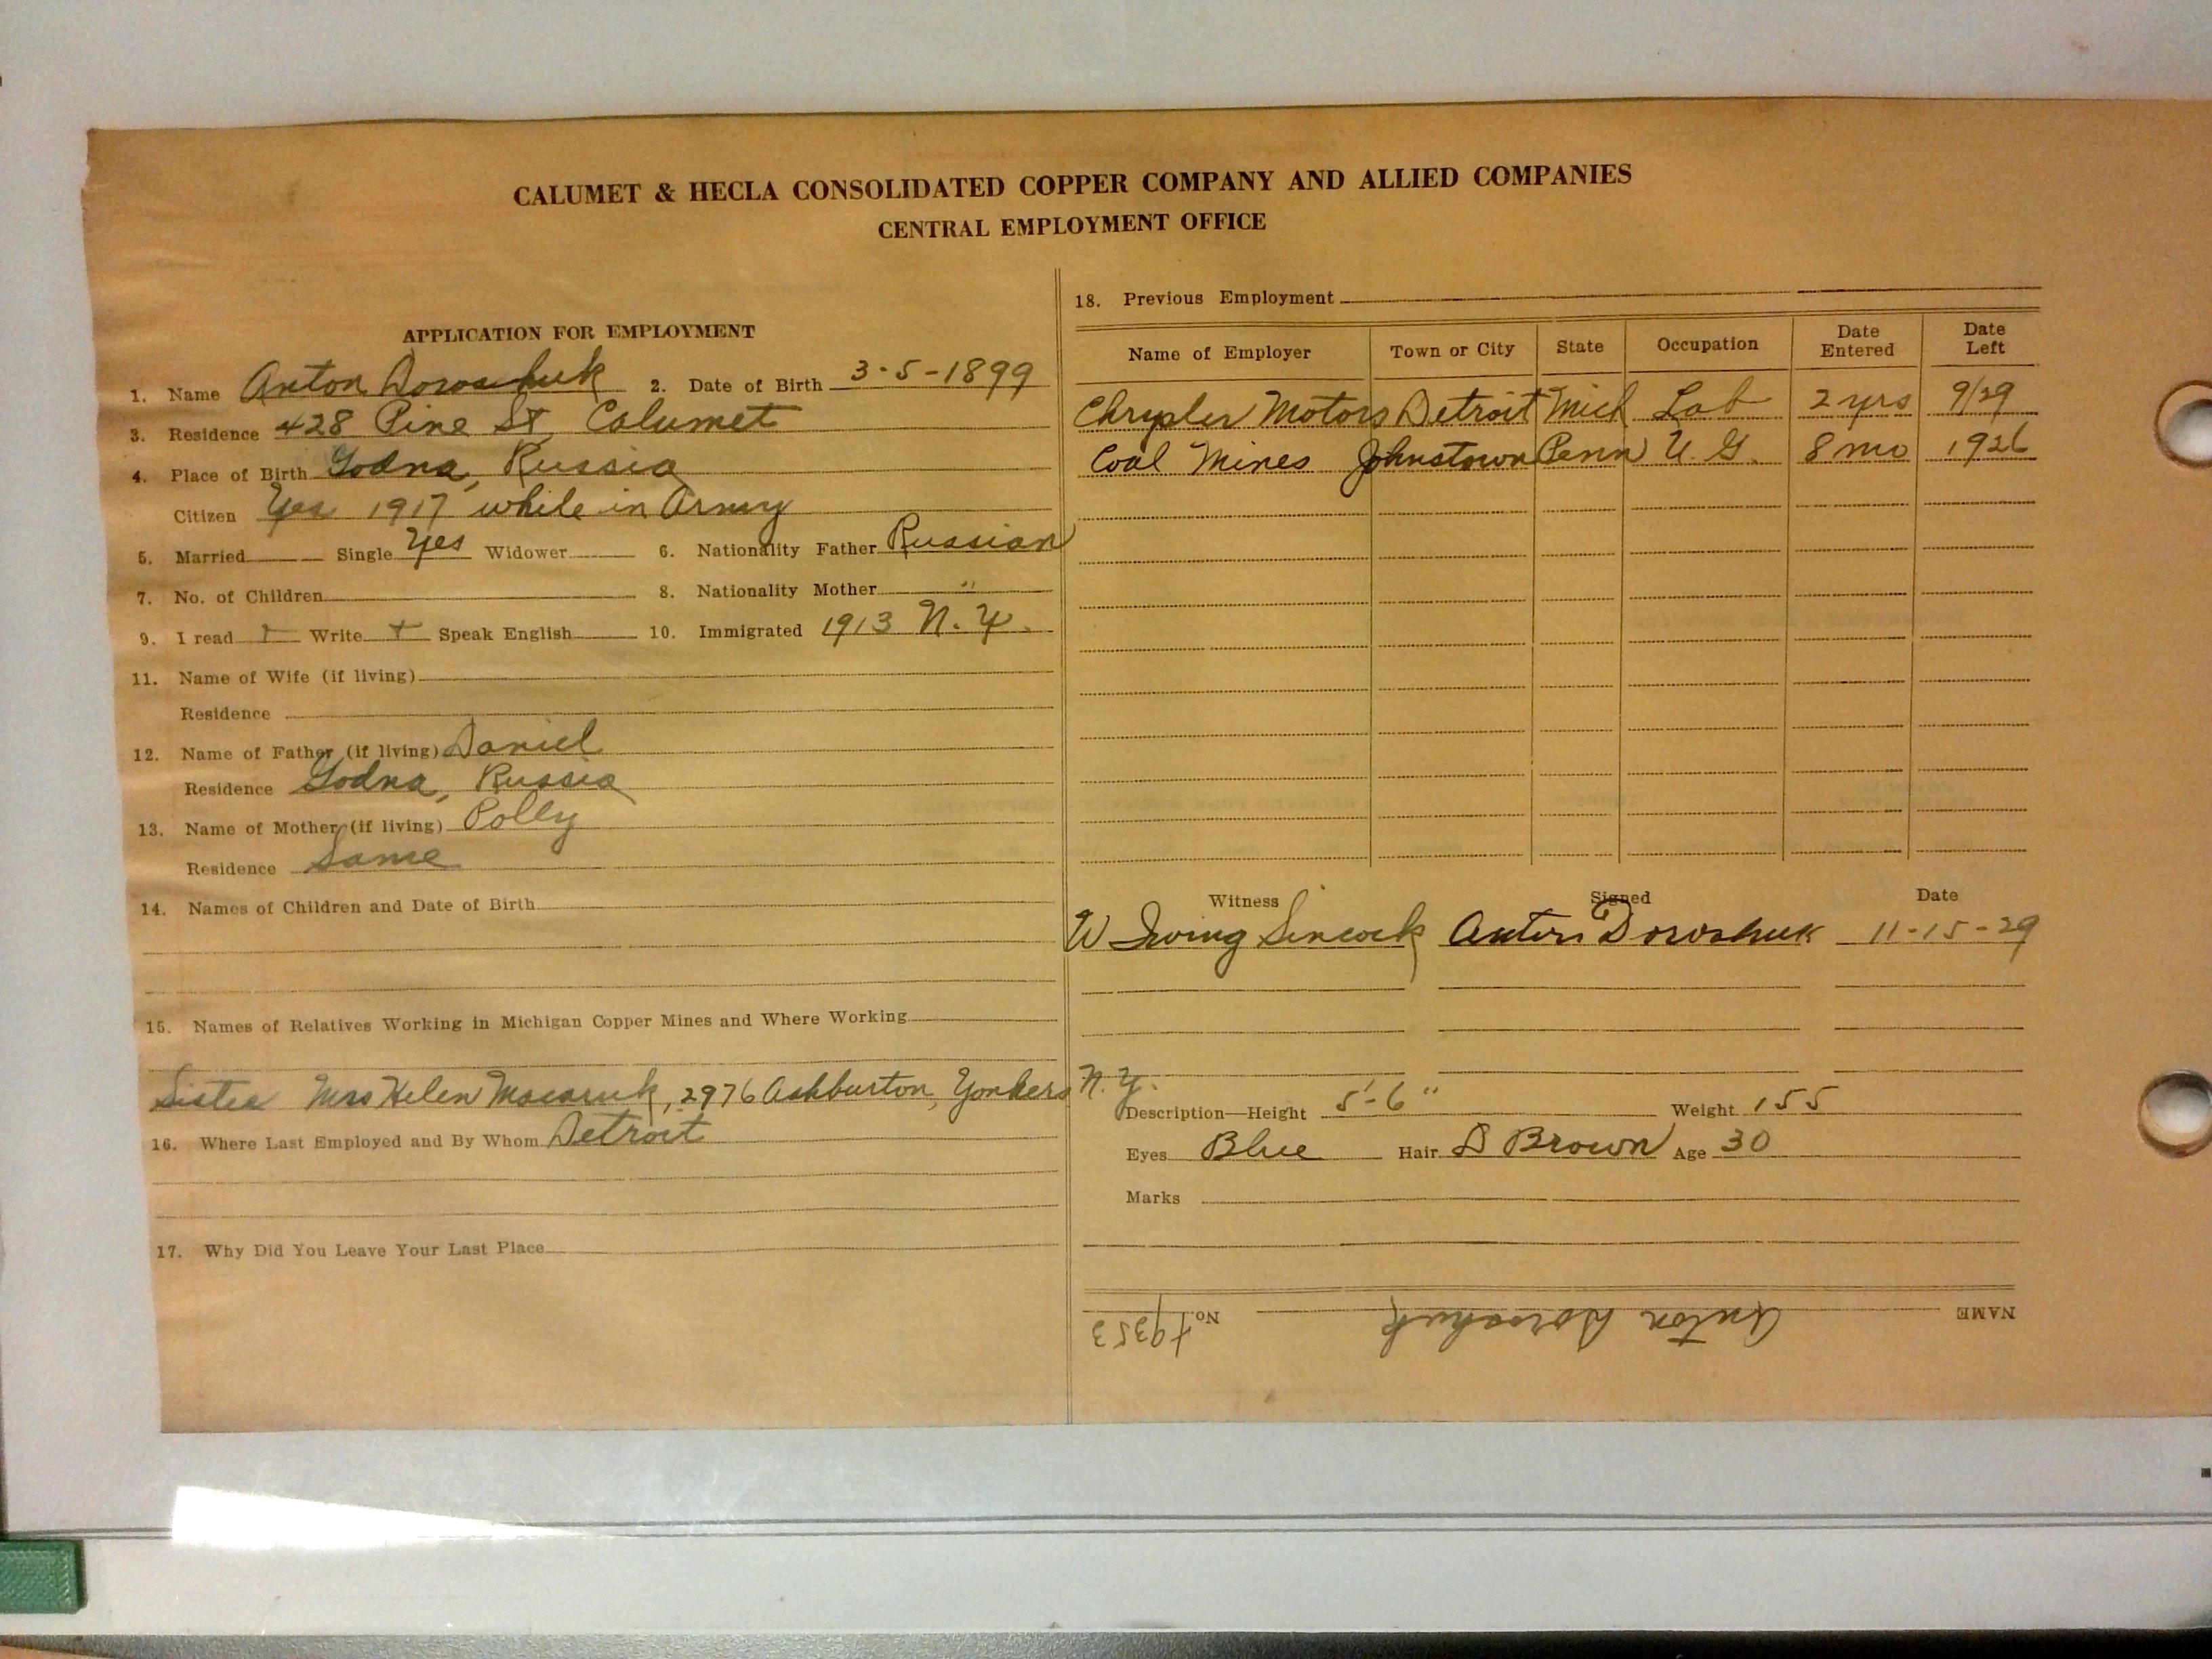 CALUMET & HECLA CONSOLIDATED COPPER COMPANY AND ALLIED COMPANIES
CENTRAL EMPLOYMENT OFFICE
APPLICATION FOR EMPLOYMENT
1. Name Anton Doroshuk 2. Date of Birth 3-5-1899
3. Residence 428 Pine St Calumet
4. Place of Birth Godna, Russia
Citizen Yes 1917 while in Army
5. Married Single Yes Widower 6. Nationality Father Russian
7. No. of Children 8. Nationality Mother "
9. I read + Write + Speak English 10. Immigrated 1913 N.Y.
11. Name of Wife (if living)
Residence
12. Name of Father (if living) Daniel
Residence Godna, Russia
13. Name of Mother (if living) Polly
Residence Same
14. Names of Children and Date of Birth
15. Names of Relatives Working in Michigan Copper Mines and Where Working
Sister Mrs Helen 2976 Ashburton, Yonkers N.Y.
16. Where Last Employed and By Whom Detroit
17. Why Did You Leave Your Last Place
18. Previous Employment
Name of Employer Town or City State Occupation Date Entered Date Left
Chrysler Motors Detroit Mich Lab 2 yrs 9/29
Coal Mines Johnstown Penn U.G. 8 mo 1926
Witness Signed Date
W Irving Sincock Anton Doroshuk 11-15-29
Description—Height 5'-6" Weight 155
Eyes Blue Hair D Brown Age 30
Marks
NAME Anton Doroshuk No. 19353